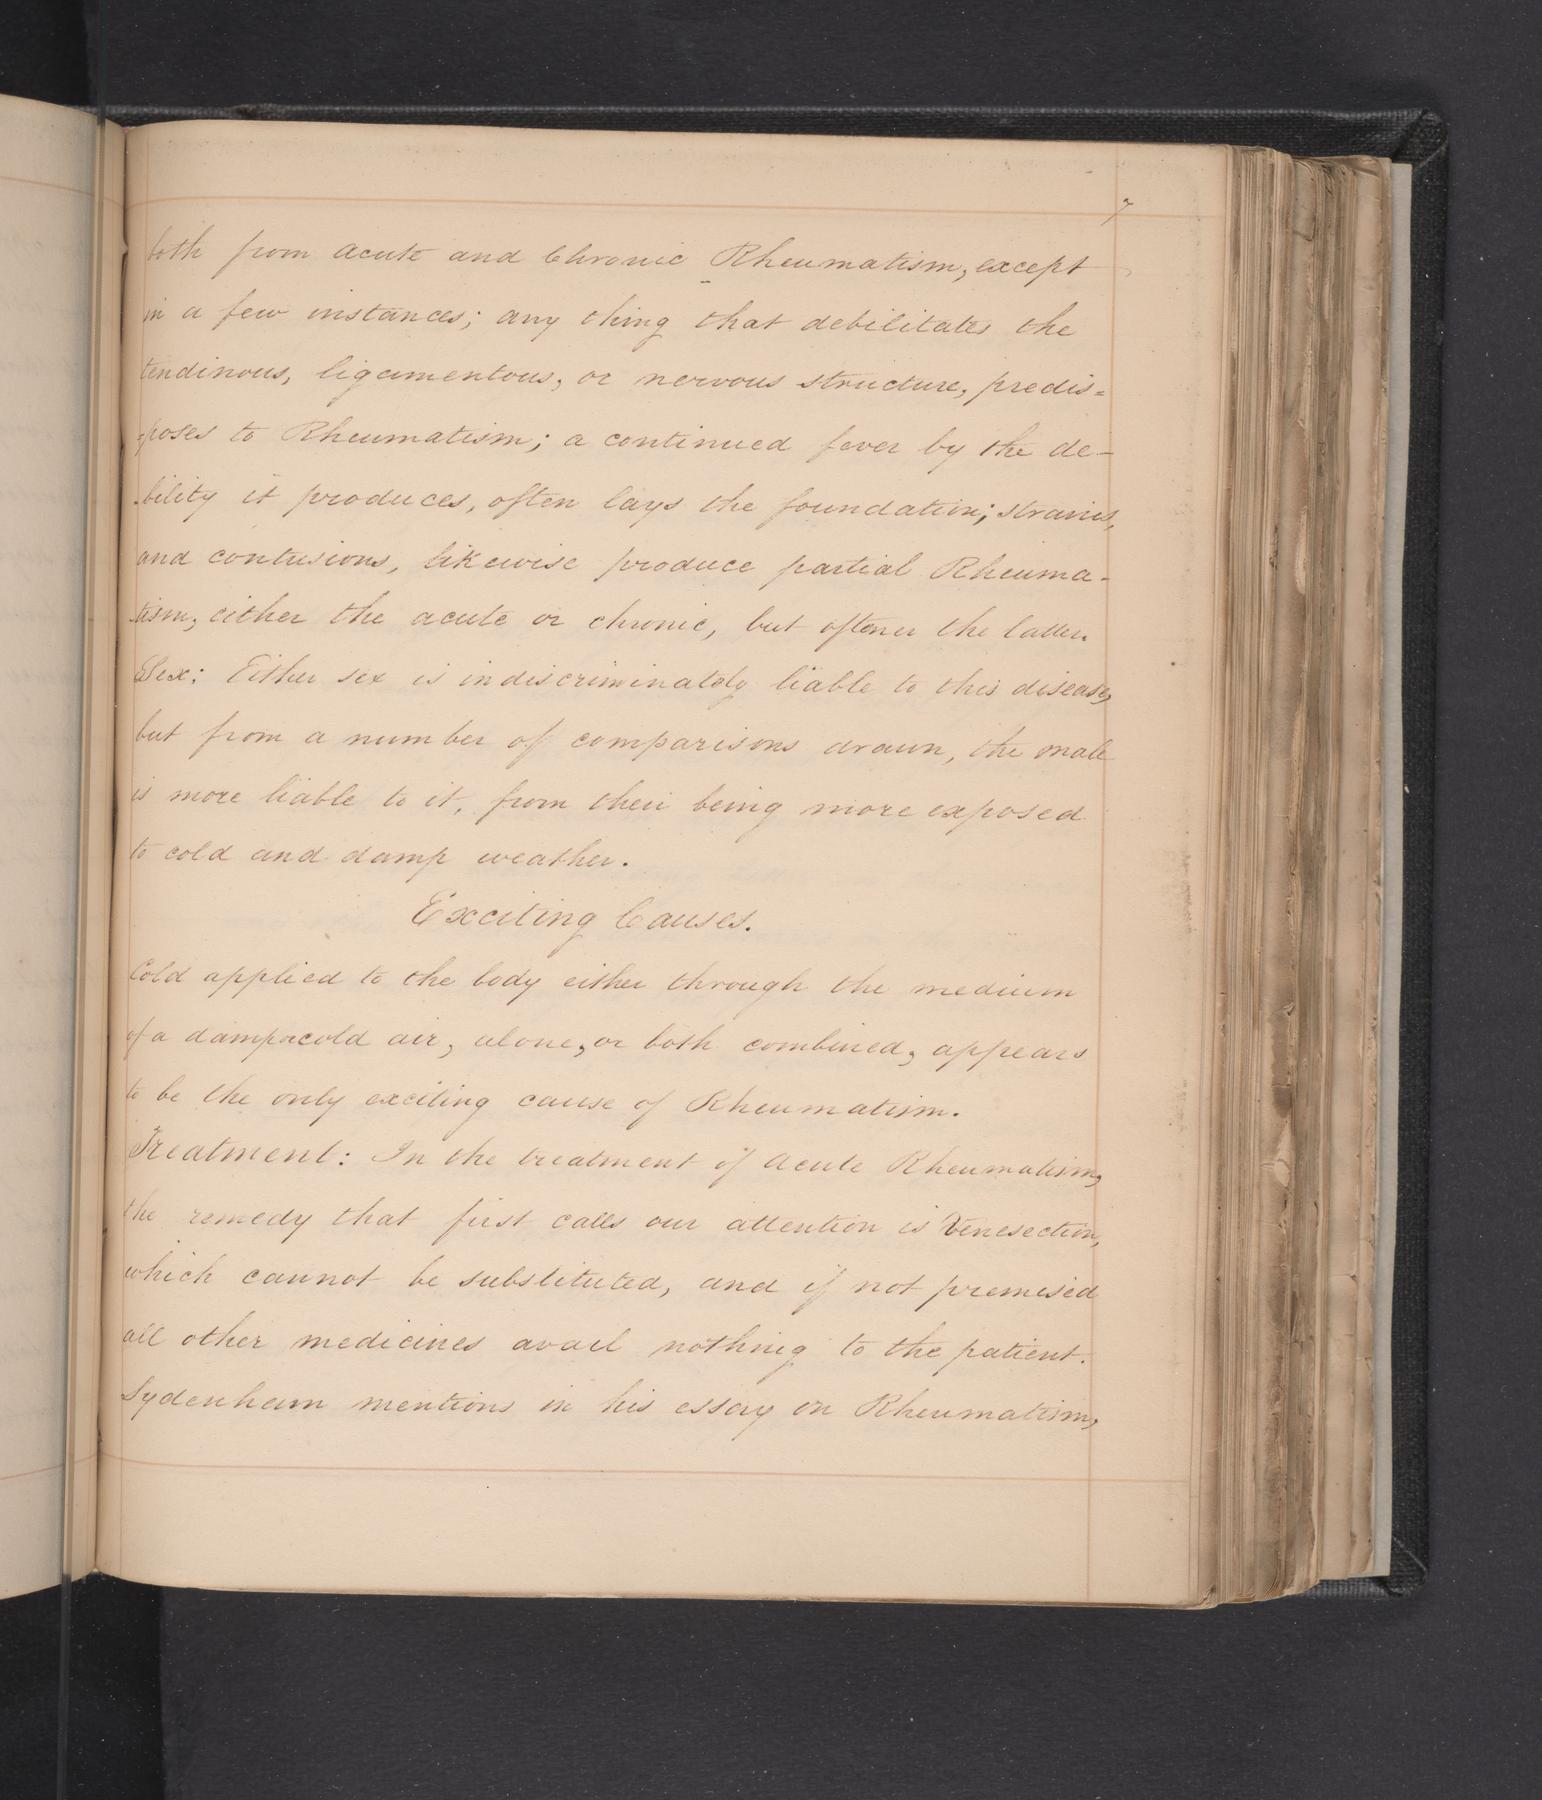 7
both from acute and Chronic Rheumatism, except
in a few instances; any thing that debilitates the
tendinous, ligamentous, or nervous structure, predis=
=poses to Rheumatism; a continued fever by the de-
-bility it produces, often lays the foundation; strains,
and contusions, likewise produce partial Rheuma-
-tism, either the acute or chronic, but oftener the latter.
Sex: Either sex is indiscriminately liable to this disease,
but from a number of comparisons drawn, the male
is more liable to it, from their being more exposed
to cold and damp weather.
Exciting Causes.
Cold applied to the body either through the medium
of a damp or cold air, alone, or both combined, appears
to be the only exciting cause of Rheumatism.
Treatment: In the treatment of acute Rheumatism,
the remedy that first calls our attention is Venesection,
which cannot be substituted, and if not premised
all other medicines avail nothing to the patient.
Sydenham mentions in his essay on Rheumatism,